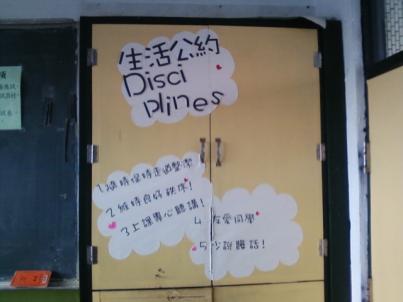 生活公約
Disci
plines
1.隨時保持走廊整潔
2.維持良好秩序!
3.上課專心聽講!
4.友愛同學
5.少說髒話!